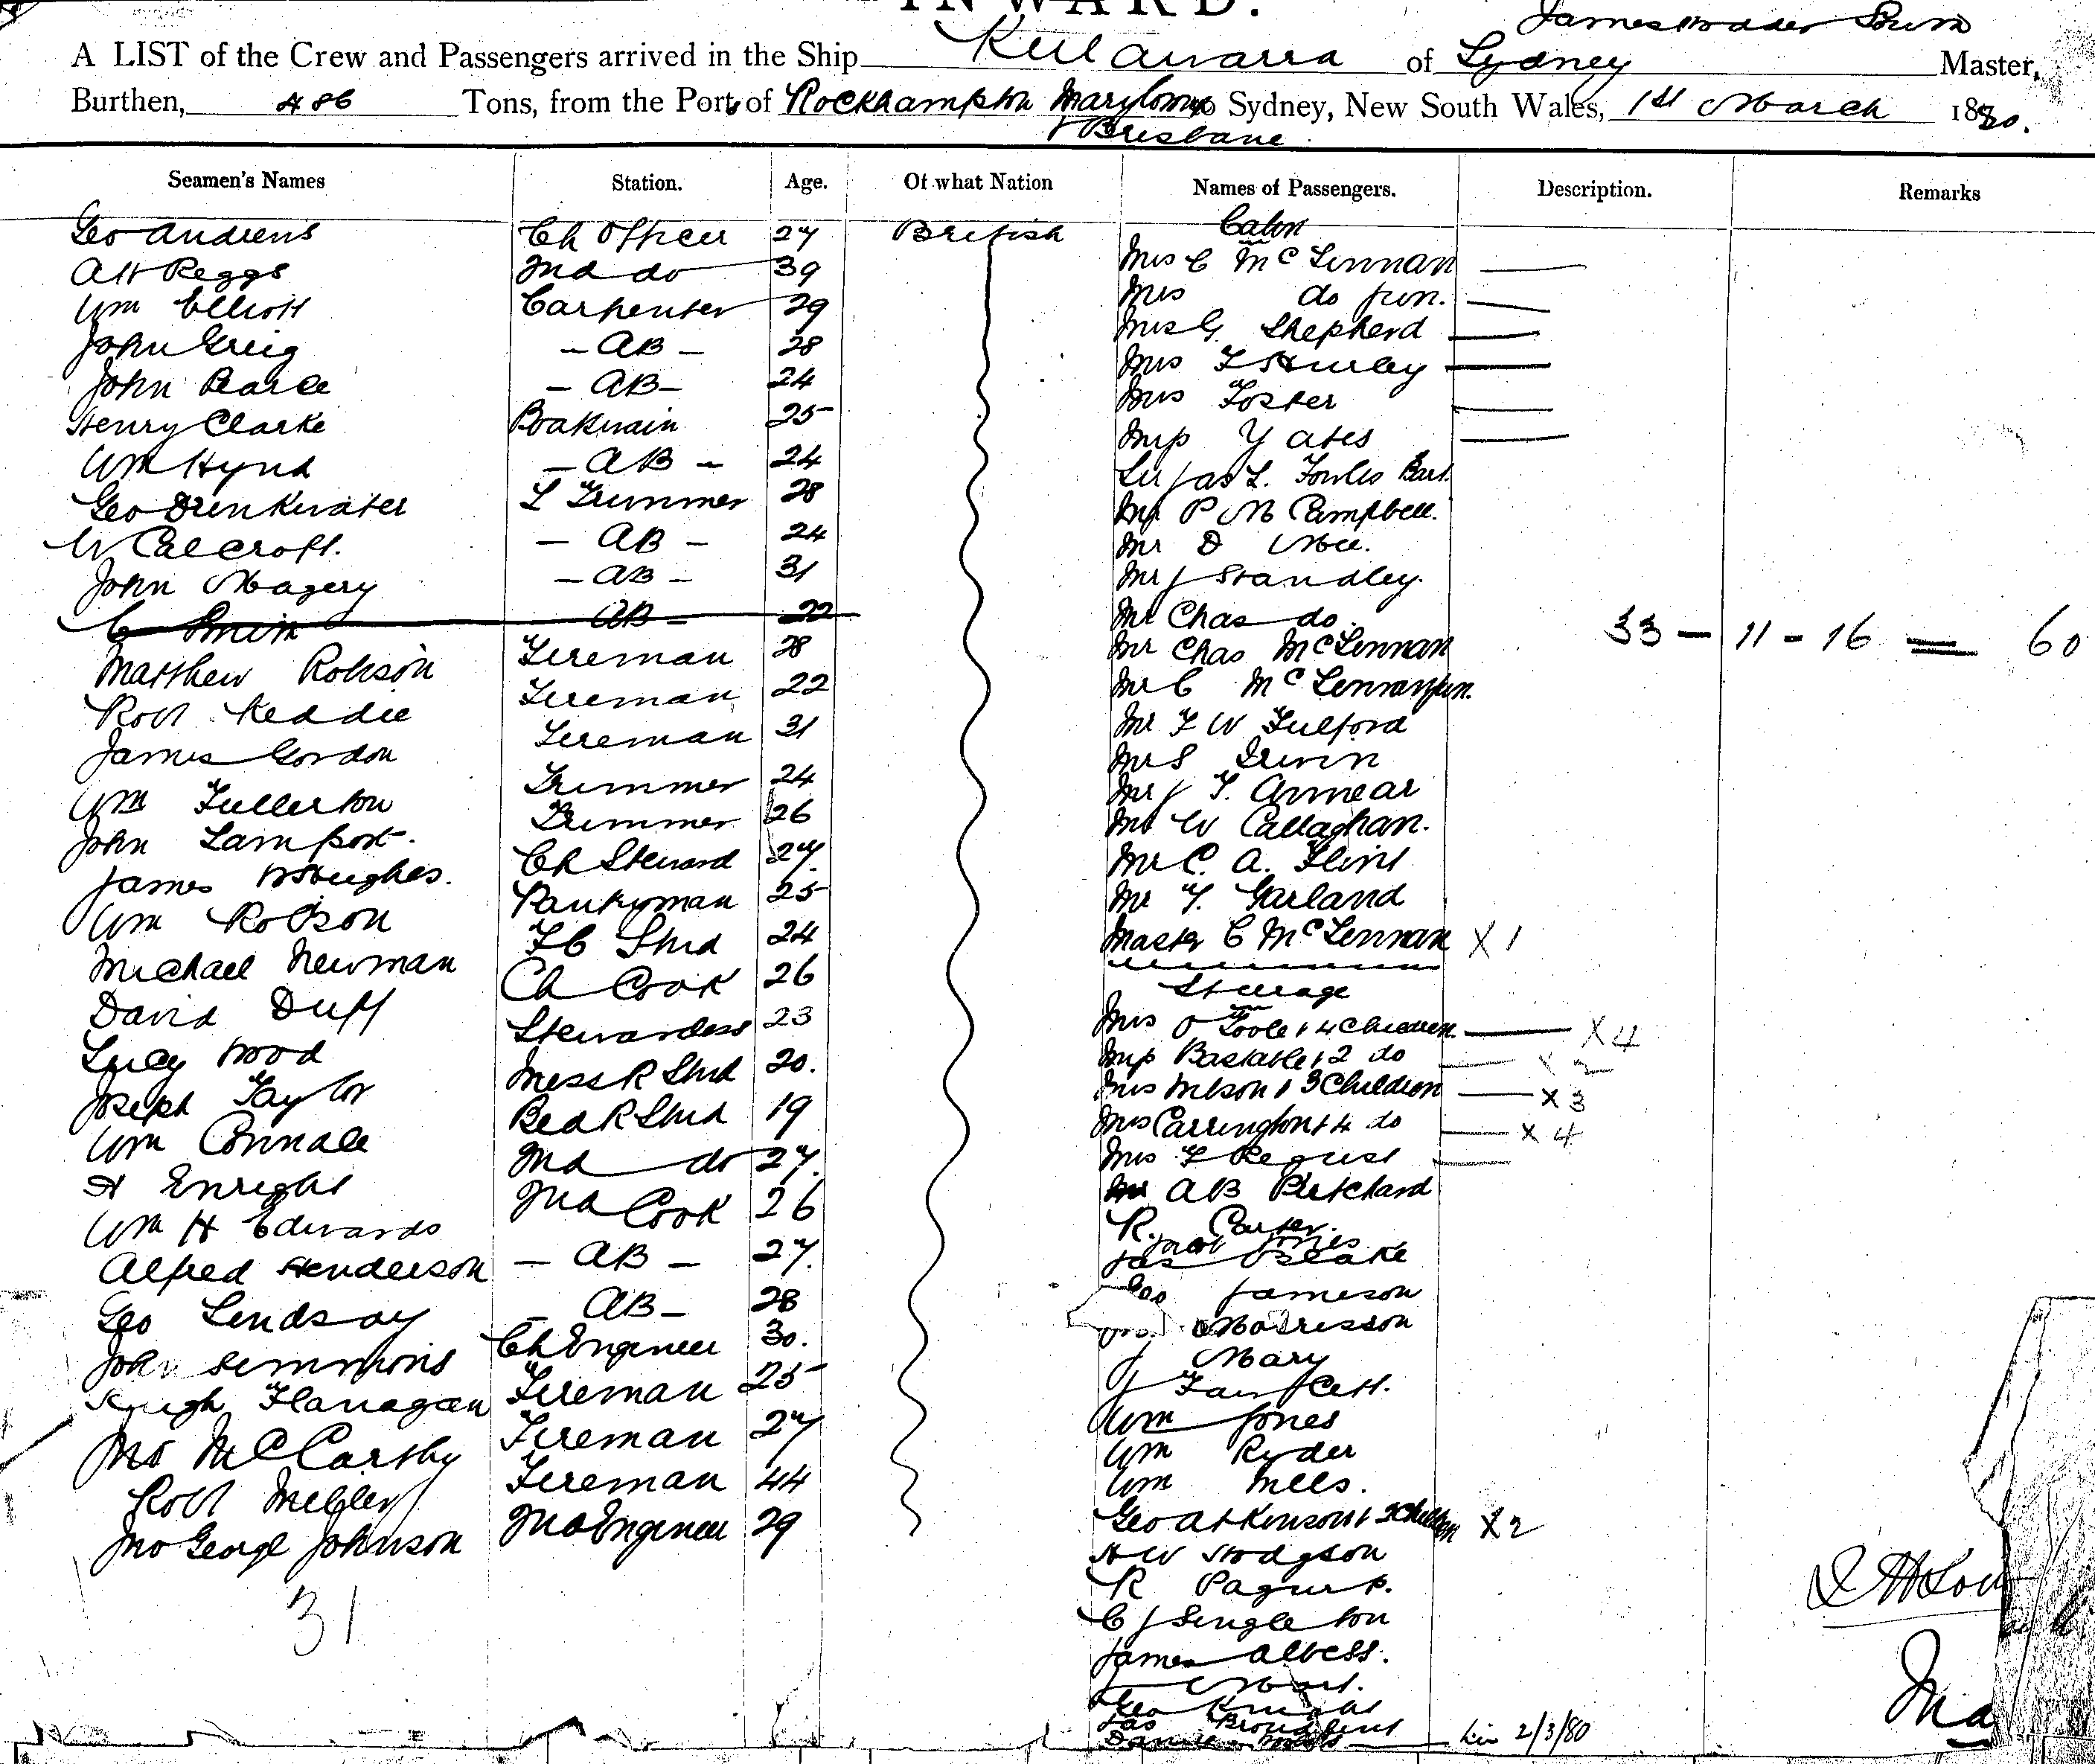 INWARD.
A LIST of the Crew and Passengers arrived in the Ship Keilawarra of Sydney James Master,
Burthen, 486 Tons, from the Ports of Rockhampton Maryboro to Sydney, New South Wales, 1st March 1880.
& Brisbane
Seamen's Names Station. Age. Of what Nation Names of Passengers. Description. Remarks
Geo Andrews Ch Officer 27 British Cabin
A H Peggs 2nd do 39 Mrs C McLennan
Wm Elliott Carpenter 29 Mrs do jun.
John Greig - AB - 28 Mrs G Shepherd
John Pearce - AB - 24 Mrs F Hurley
Henry Clarke Boatswain 25 Mrs Foster
Wm Hynd - AB - 24 Miss Yates
Geo Drinkwater L Trimmer 28 Sir Jas L. Fowles Bart.
W Calcroft. - AB - 24 Mr P M Campbell.
John Magery - AB - 31 Mr D
C Smith AB - 22 Mr J Standley.
Matthew Robson Fireman 28 Mr Chas do.
Robt Keddie Fireman 22 Mr Chas McLennan 33 - 11 - 16 = 60
James Gordon Fireman 31 Mr C McLennan jun.
Wm Fullerton Trimmer 24 Mr F W Fulford
John Lamport. Trimmer 26 Mr S Irwin
James Hughes. Ch Steward 27. Mr J T. Annear
Wm Robson Pantryman 25 Mr W Callaghan.
Michael Newman F C Stwd 24 Mr C. A. Flint
David Duff Ch Cook 26 Mr T. Garland
Lucy Wood Stewardess 23 Master C McLennan X 1
Joseph Taylor Mess R Stwd 20. Steerage
Wm Connale Bed R Stwd 19 Mrs O Toole & 4 Children X 4
H Enright 2nd do 27. Mrs Bastable & 2 do X 2
Wm H Edwards 2nd Cook 26 Mrs Wilson & 3 Children X 3
Alfred Henderson - AB - 27. Mrs Carrington & 4 do X 4
Geo Lindsay - AB - 28 Mrs F Requist
John Simmons Ch Engineer 30. Mr A B Pritchard
Hugh Flanagan Fireman 25 R. Carter.
Jno McCarthy Fireman 27 Jacob Jones
Robt Miller Fireman 44 Jas Blake
Jno George Johnson 2nd Engineer 29 Geo Jameson
31 Morrisson
J Mary
J
Wm Jones
Wm Ryder
Wm Mills.
Geo Atkinson & 2 Children X 2
H W Hodgson
R
C J Singleton
James Albess.
J
Geo Knight
Jas Broadbent
Daniel
2/3/80